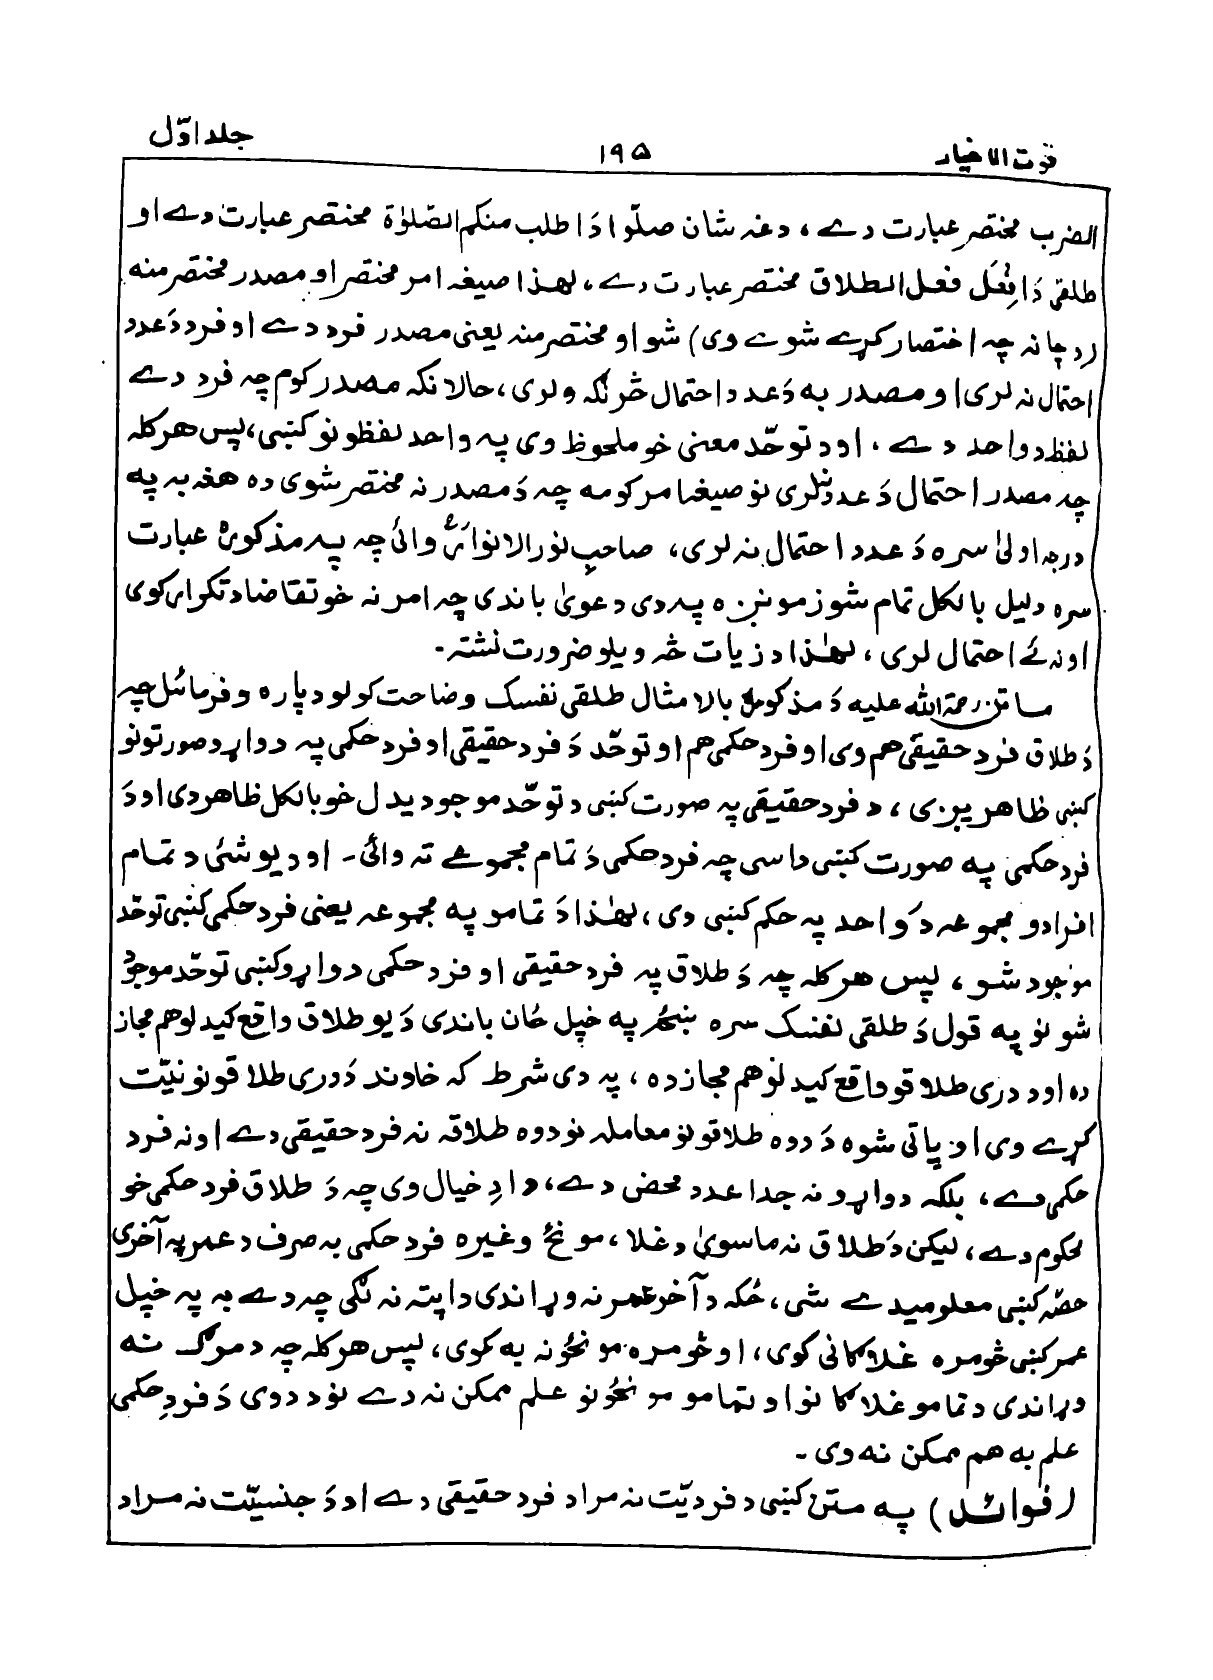 قوت الاخیار ۱۹۵ جلد اوّل
الضرب مختصر عبارت دے، دغہ شان صلّوا دَ اطلب منکم الصّلوٰۃ مختصر عبارت دے او
طلقی دَ اِفْعَلْ فعل الطلاق مختصر عبارت دے، لھٰذا صیغہ امر مختصر او مصدر مختصر منہ
(د چا نہ چہ اختصار کړے شوے وی) شو او مختصر منہ یعنی مصدر فرد دے او فرد دَ عدد
احتمال نہ لری او مصدر بہ دَ عدد احتمال څرنګہ ولری، حالانکہ مصدر کوم چہ فرد دے
لفظ د واحد دے، او د توحّد معنی خو ملحوظ وی پہ واحد لفظونو کښی، پس ھر کلہ
چہ مصدر احتمال دَ عدد نہ لری نو صیغہ امر کومہ چہ دَ مصدر نہ مختصر شوی دہ ھغہ بہ پہ
درجہ اولیٰ سرہ دَ عدد احتمال نہ لری، صاحبِ نور الانوار وائی چہ پہ مذکورہ عبارت
سرہ دلیل بالکل تمام شو زمونږہ پہ دی دعویٰ باندی چہ امر نہ خو تقاضا د تکرار کوی
او نہ ئے احتمال لری، لھٰذا د زیات څہ ویلو ضرورت نشتہ۔
ماتن رحمۃ اللہ علیہ دَ مذکورہ بالا مثال طلقی نفسک وضاحت کولو دپارہ وفرمائل چہ
دَ طلاق فرد حقیقی ھم وی او فرد حکمی ھم او توحّد دَ فرد حقیقی او فرد حکمی پہ دواړو صورتونو
کښی ظاھریږی، د فرد حقیقی پہ صورت کښی د توحّد موجودیدل خو بالکل ظاھر دی او دَ
فرد حکمی پہ صورت کښی داسی چہ فرد حکمی دَ تمام مجموعے تہ وائی۔ او د یو شئی د تمام
افرادو مجموعہ دَ واحد پہ حکم کښی دی، لھٰذا دَ تمامو پہ مجموعہ یعنی فرد حکمی کښی توحّد
موجود شو، پس ھر کلہ چہ دَ طلاق پہ فرد حقیقی او فرد حکمی دواړو کښی توحّد موجود
شو نو پہ قول دَ طلقی نفسک سرہ ښځہ پہ خپل ځان باندی دَ یو طلاق واقع کیدلو ھم مجاز
دہ او د دری طلاقو واقع کیدلو ھم مجاز دہ، پہ دی شرط کہ خاوند دَ دری طلاقونو نیّت
کړے وی او پاتی شوہ دَ دوہ طلاقونو معاملہ نو دوہ طلاقہ نہ فرد حقیقی دے او نہ فرد
حکمی دے، بلکہ دواړو نہ جدا عدد محض دے، دادِ خیال وی چہ دَ طلاق فرد حکمی خو
محکوم دے، لیکن دَ طلاق نہ ماسویٰ د غلا، مونځ وغیرہ فرد حکمی بہ صرف د عمر پہ آخری
حصّہ کښی معلومیدے شی، ځکہ د آخر عمر نہ وړاندی دا پتہ نہ لګی چہ دے بہ پہ خپل
عمر کښی څومرہ غلاګانی کوی، او څومرہ مونځونہ بہ کوی، پس ھر کلہ چہ د مرګ نہ
وړاندی د تمامو غلاګانو او تمامو مونځونو علم ممکن نہ دے نو د دوی دَ فردِ حکمی
علم بہ ھم ممکن نہ وی۔
(فوائد) پہ متن کښی د فردیّت نہ مراد فرد حقیقی دے او دَ جنسیّت نہ مراد